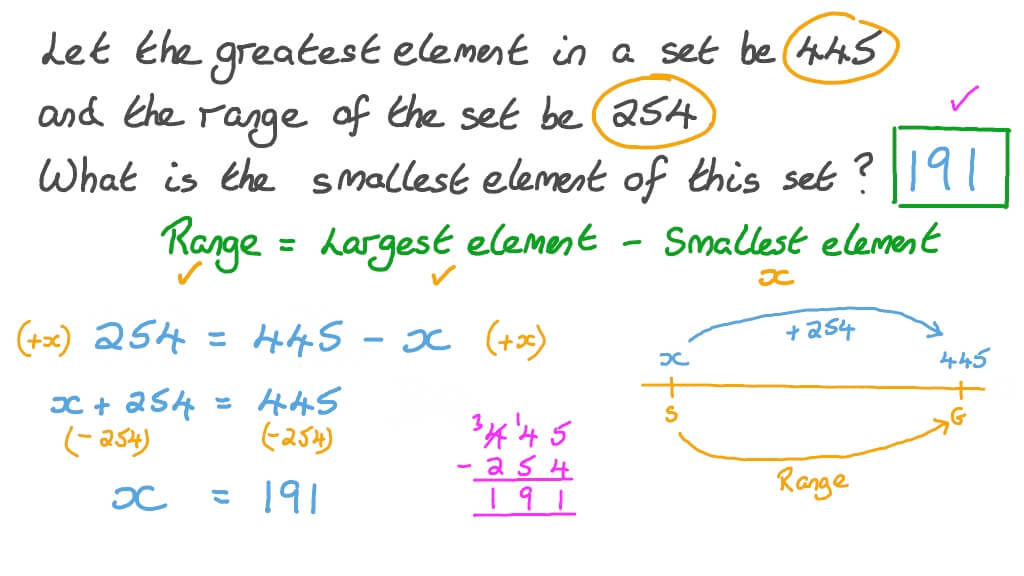 Let the greatest element in a set be 445
and the range of the set be 254 ✓
What is the smallest element of this set? 191
Range = Largest element - Smallest element
✓ ✓ x
(+x) 254 = 445 - x (+x)
x + 254 = 445
(-254) (-254)
x = 191
3 4 1 4 5
- 2 5 4
1 9 1
+254
x 445
S G
Range